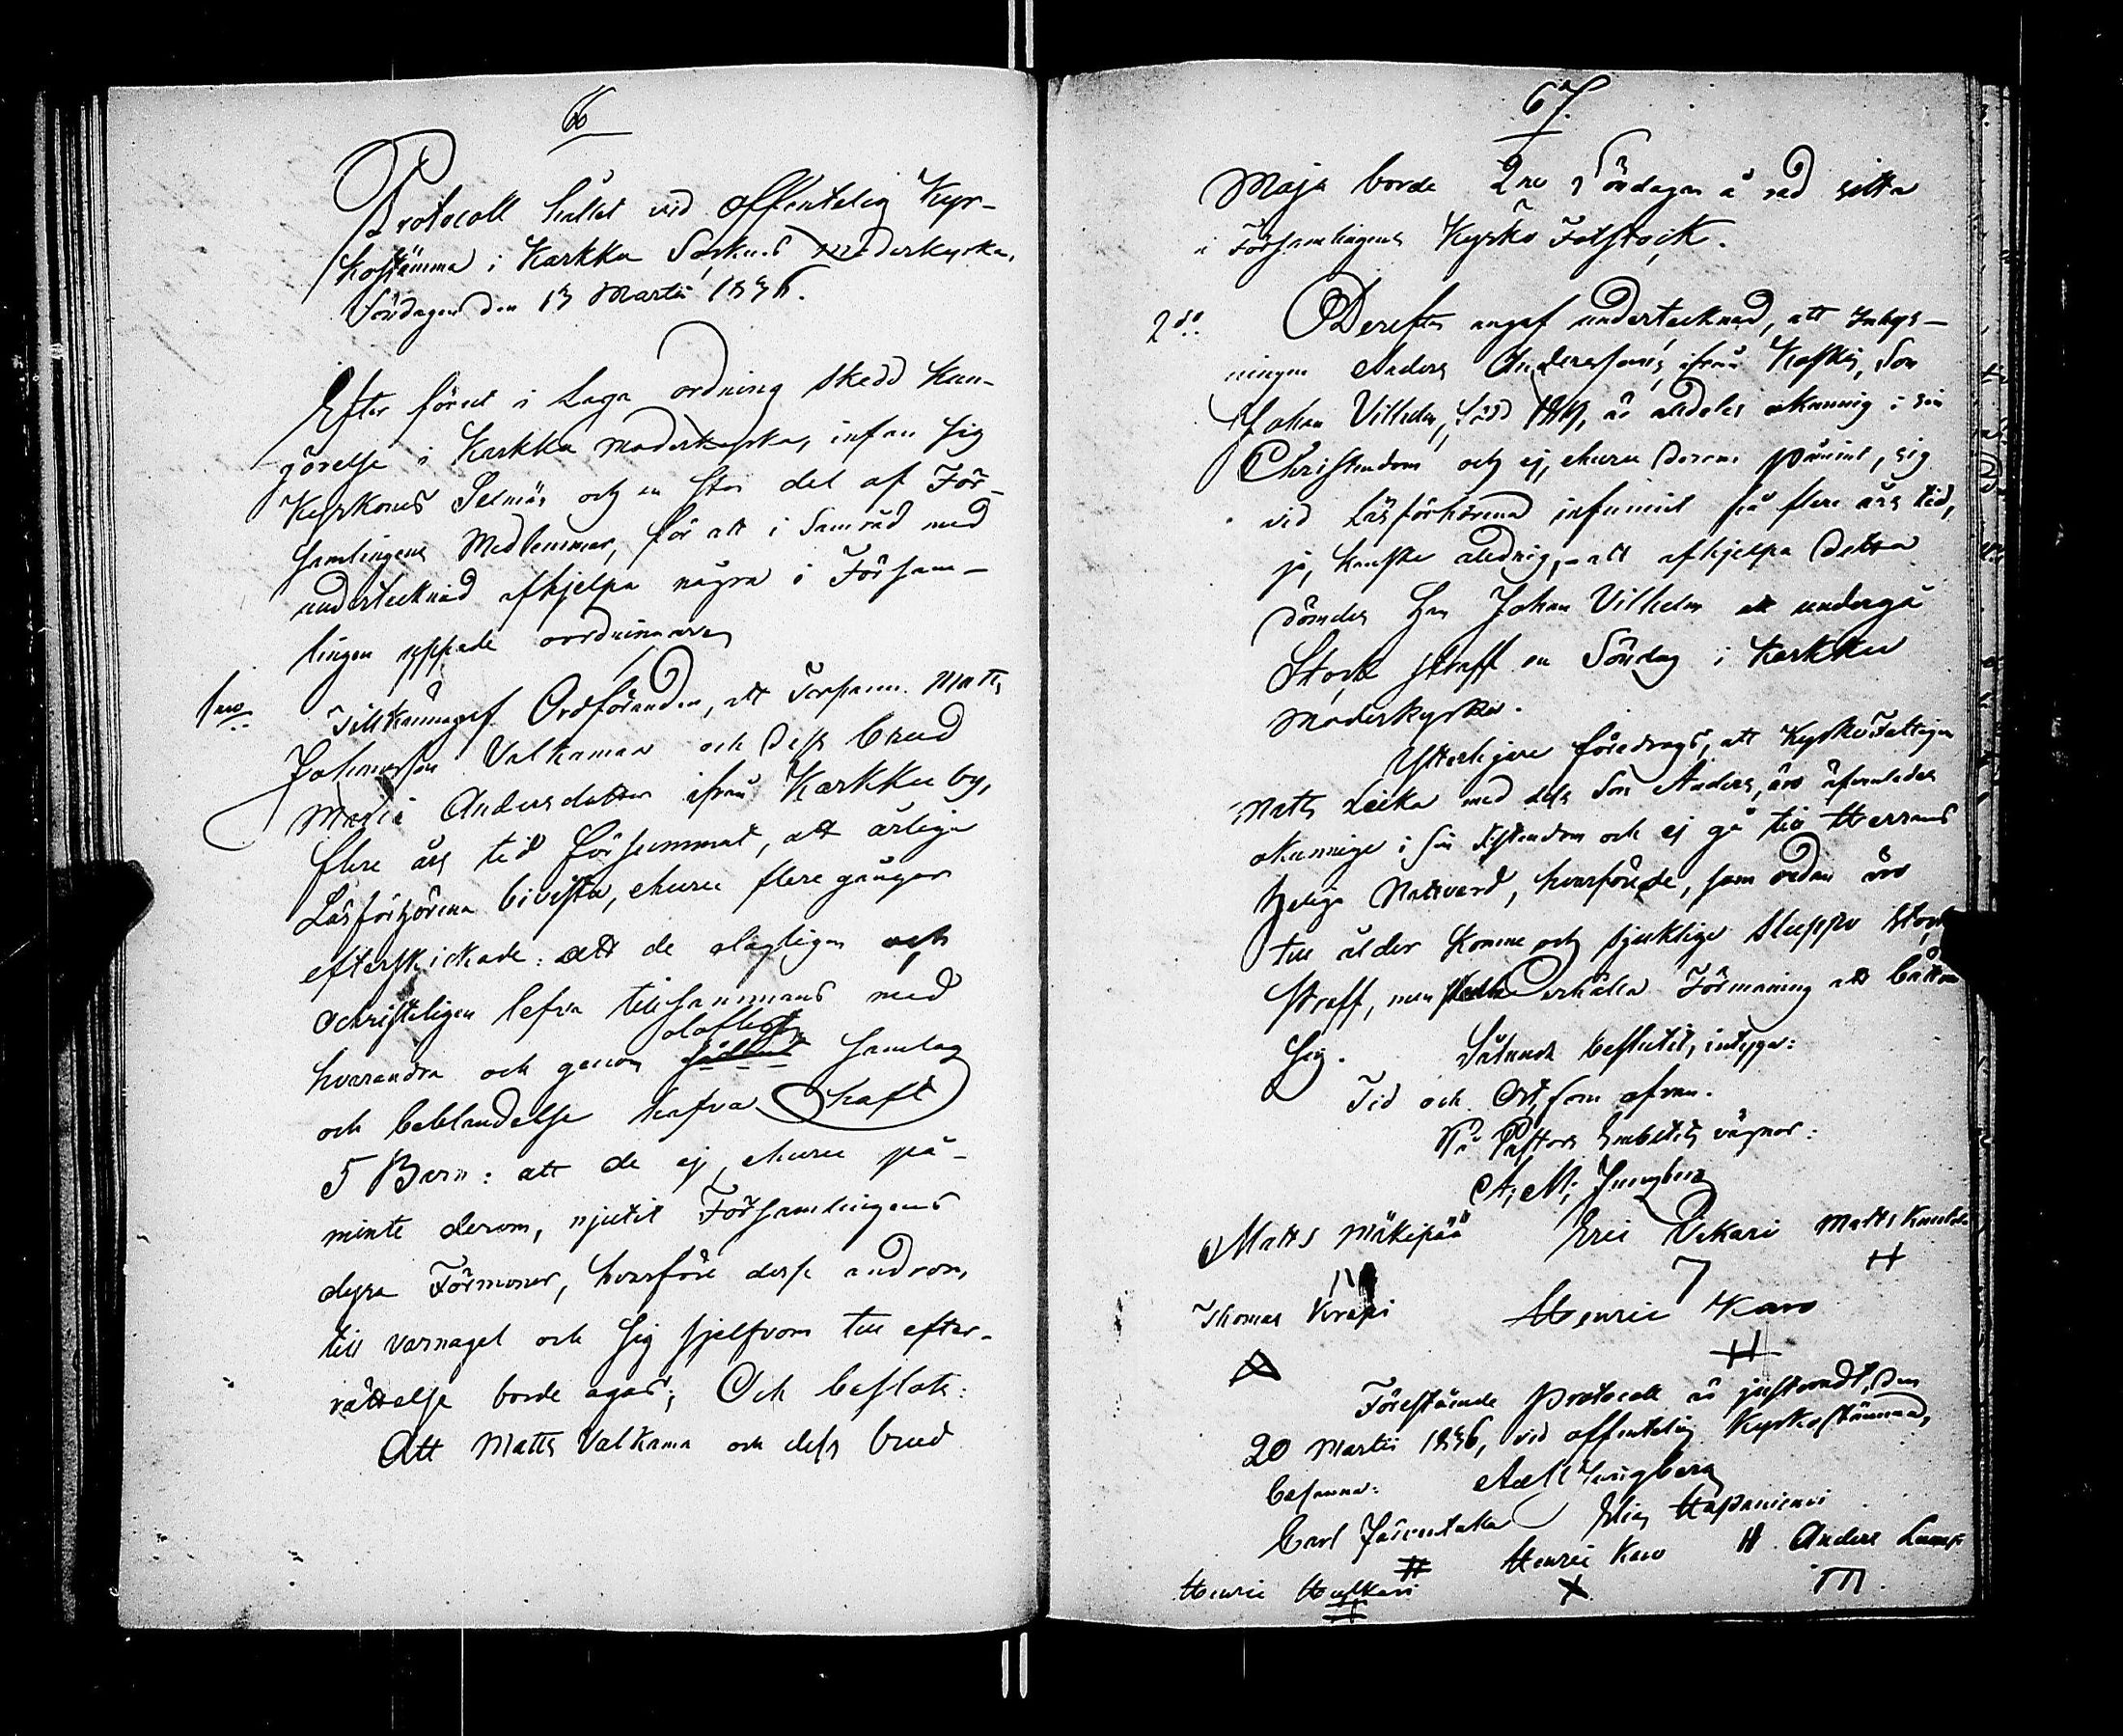 66
Protocoll hållet vid offentelig Kyr-
kostämma i Karkku Sockens Moderkyrka,
Söndagen den 13 Martii 1836.
Efter förut i Laga ordning skedd kun-
görelse i Karkku Moderkyrka, infan sig
Kyrkones Sexmän och en stor del af För-
samlingens Medlemmar, för att i Samråd med
undertecknad afhjelpa några i Försam-
lingen yppade oordningar,
1mo. Tillkännagaf Ordföranden, att Torparen Matts
Johansson Valkaman och dess brud
Maria Andersdotter ifrån Karkku by,
flere års tid försummat, att årliga
Läsförhören bivista, ehuru flere gånger
efterskickade: att de olagligen och
ochristeligen lefva tillsammans med
olofligt
hvarandra och genom sådant samlag
och beblandelse hafva haft
5 Barn: att de ej, ehuru på-
minte derom, njutit Församlingens
dyra Förmoner, hvarföre desse androm
till varnagel och sig sjelfvom till efter-
rättelse borde agas; Och beslöts:
Att Matts Valkama och dess brud
67.
Maja borde 2ne Söndagar å rad sitta
i Församlingens Kyrko Fotstock.
2do. Derefter angaf undertecknad, att Inhys-
ningen Anders Anderssons, ifrån Koski, Son
Johan Vilhelm, född 1819, är aldeles okunnig i sin
Christendom och ej, ehuru derom påmint, sig
vid Läsförhören infunnit på flere års tid,
ja, kanske aldrig, - att afhjelpa detta
dömdes Han Johan Vilhelm att undergå
Stock straff en Söndag i Karkku
Moderkyrka.
Ytterligare föredrogs, att Kyrko Fattigen
Matts Leika med dess Son Anders, äro äfvenledes
okunnige i sin Kristendom och ej gå till Herrans
Heliga Nattvard, hvarföre de, som redan äro
till ålder komne och sjuklige sluppo Stock
straff, men skulle erhålla Förmaning att bättra
sig. Sålunda beslutit, intygar:
Tid och Ort, som ofvan.
På Pastors Embetets vägnar:
A. M. Ljungberg
Matts Mäkipää Eric Vikari Matts
Thomas Krapi Henric Karo
Förestående Protocoll är justeradt, den
20 Martii 1836, vid offentelig Kyrkostämma,
besanna: A M Ljungberg
Carl Elias Hapaniemi
Henric Karo Anders
Henric